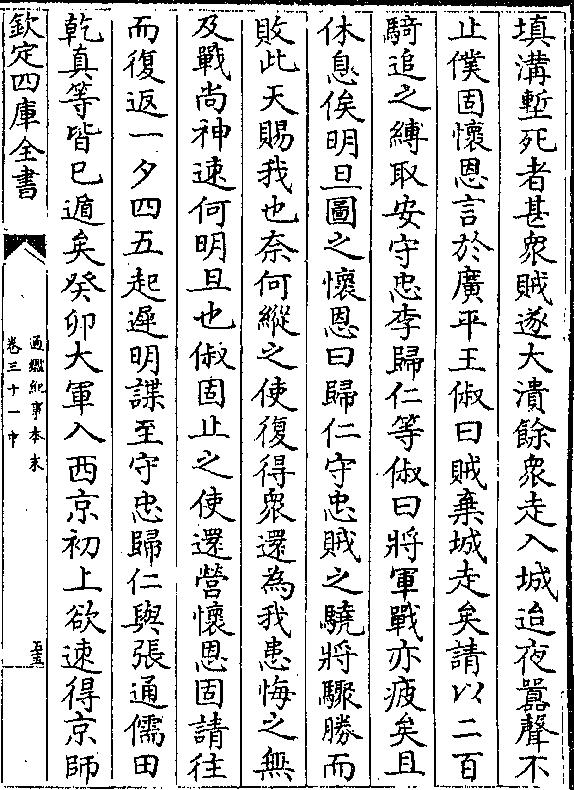 填溝塹死者甚衆賊遂大潰餘衆走入城迨夜囂聲不
止僕固懷恩言於廣平王俶曰賊棄城走矣請以二百
騎追之縛取安守忠李歸仁等俶曰將軍戰亦疲矣且
休息俟明旦圖之懷恩曰歸仁守忠賊之驍將驟勝而
敗此天賜我也奈何縱之使復得衆還為我患悔之無
及戰尚神速何明旦也俶固止之使還營懷恩固請往
而復返一夕四五起遲明諜至守忠歸仁與張通儒田
乾真等皆已遁矣癸卯大軍入西京初上欲速得京師
欽定四庫全書
通鑑紀事本末
卷三十一中